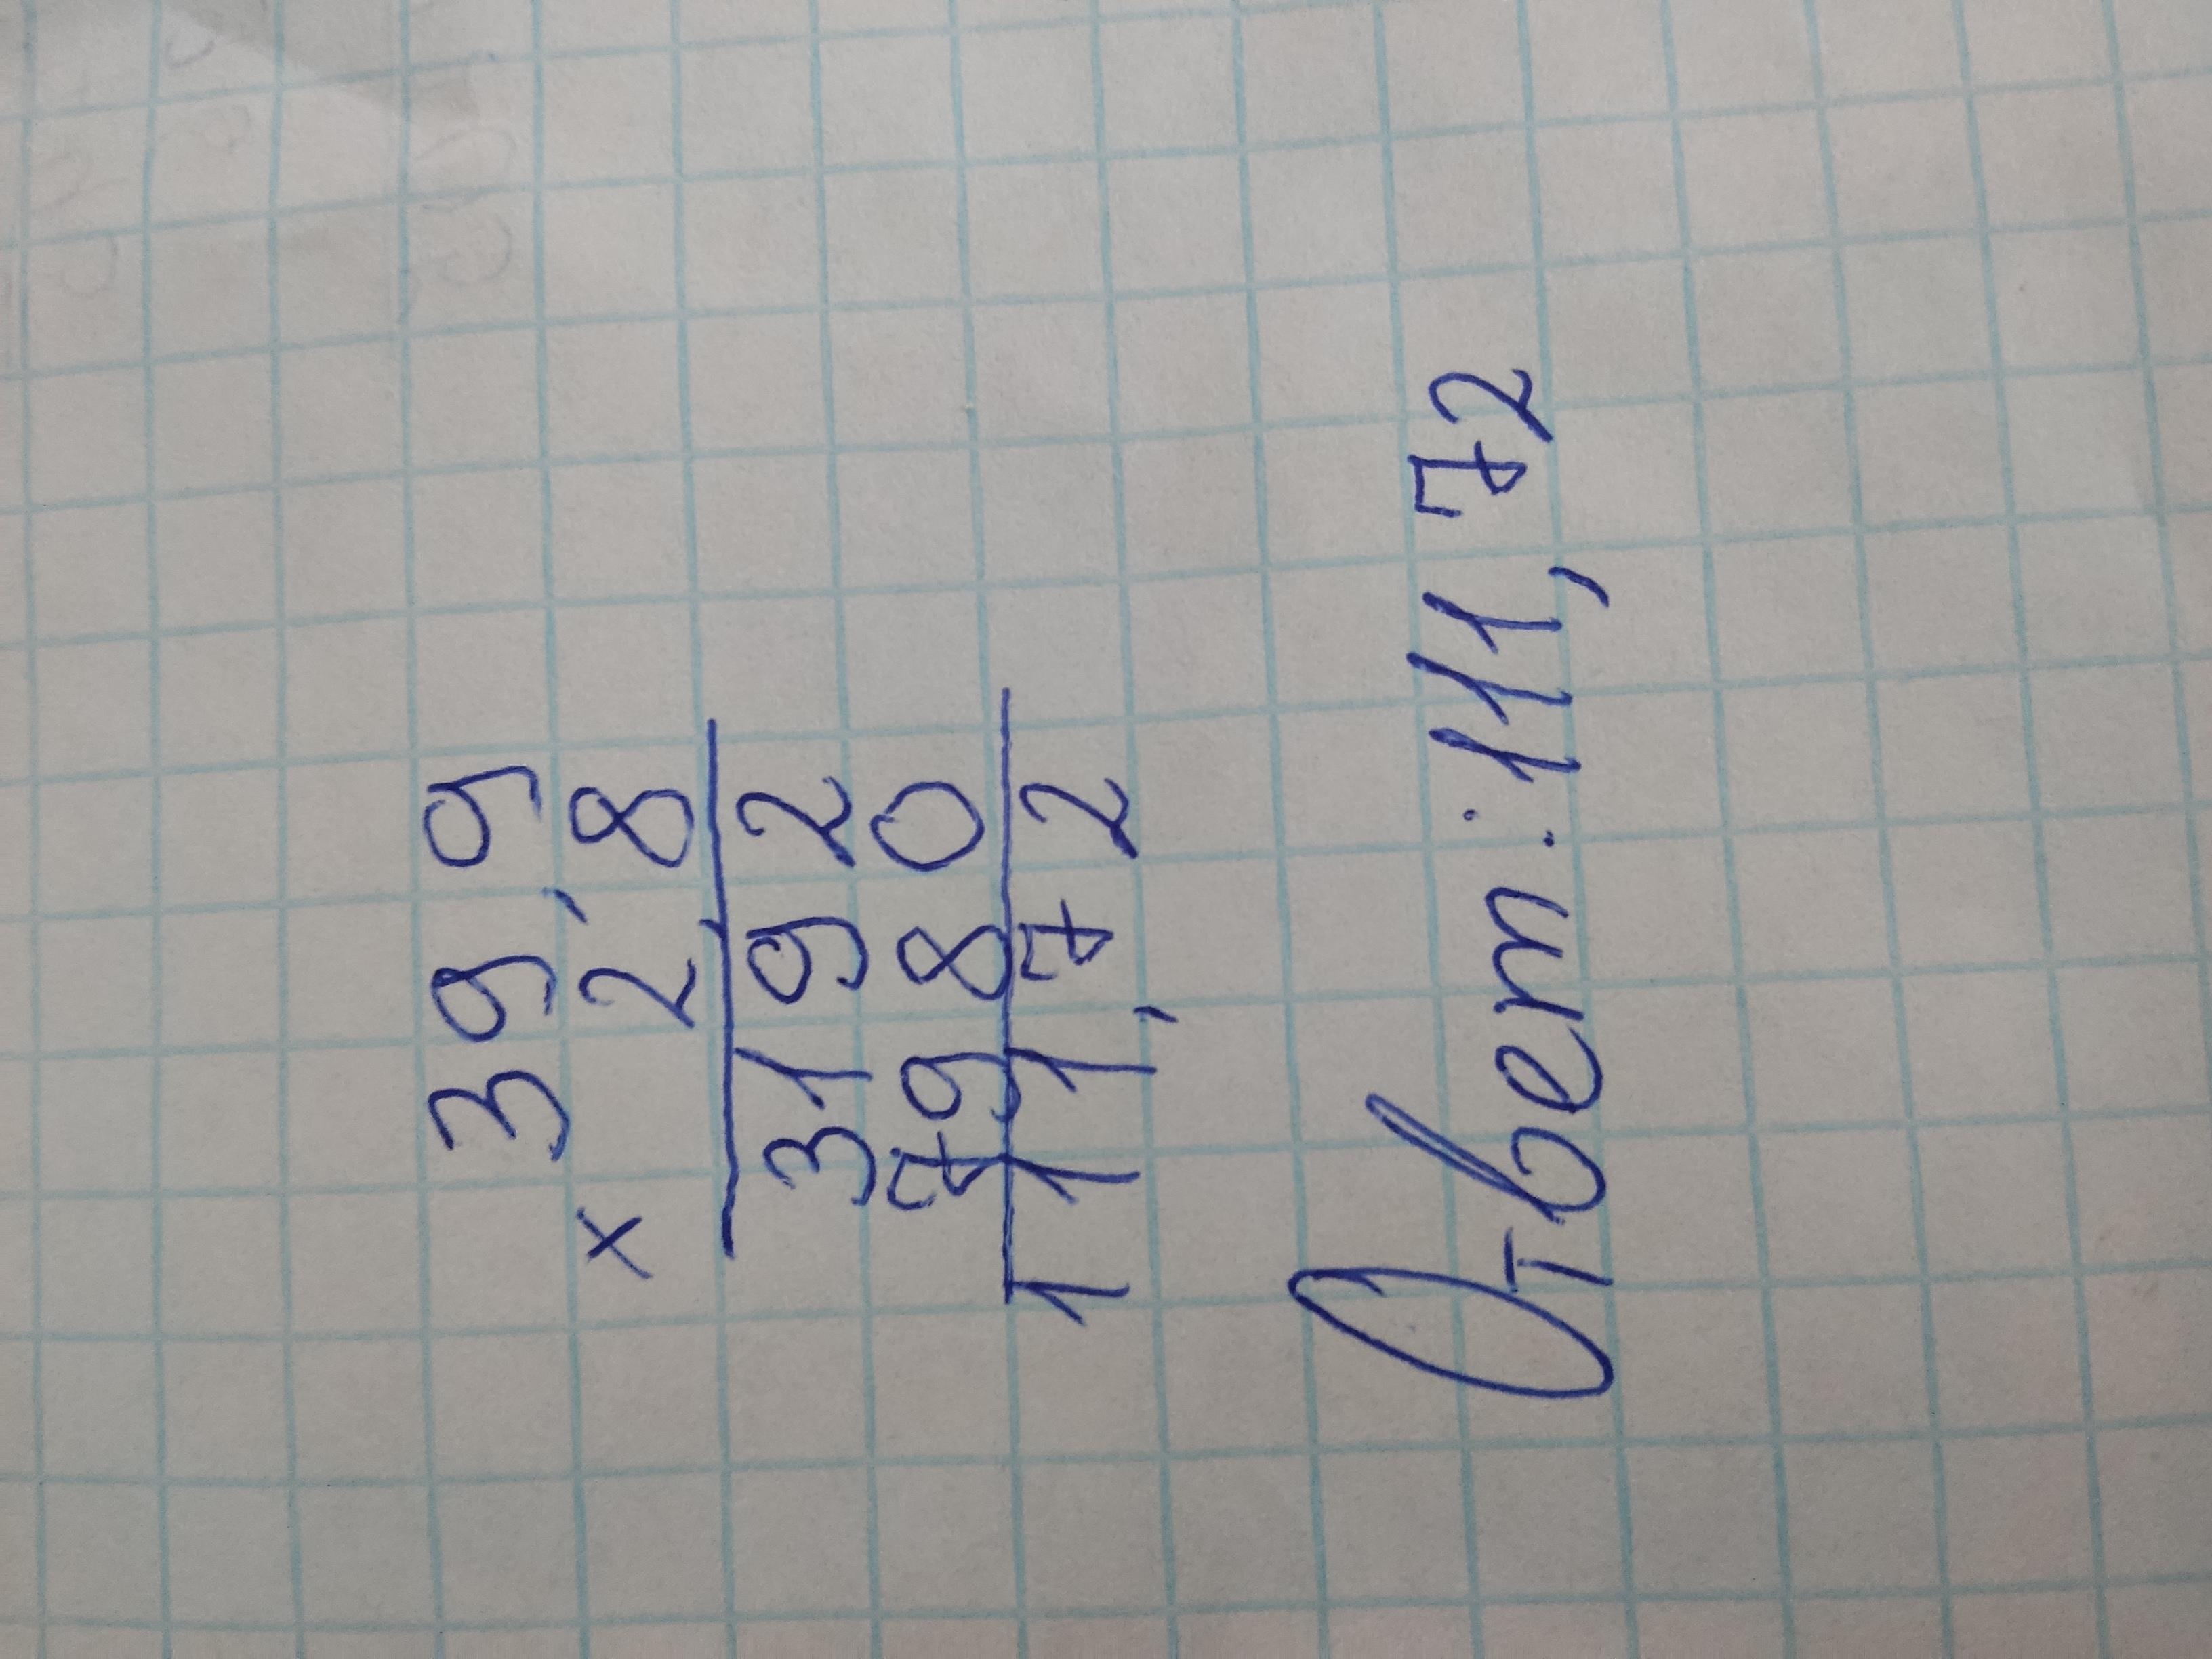 39,9
× 2,8
3192
7980
111,72
Ответ: 111,72